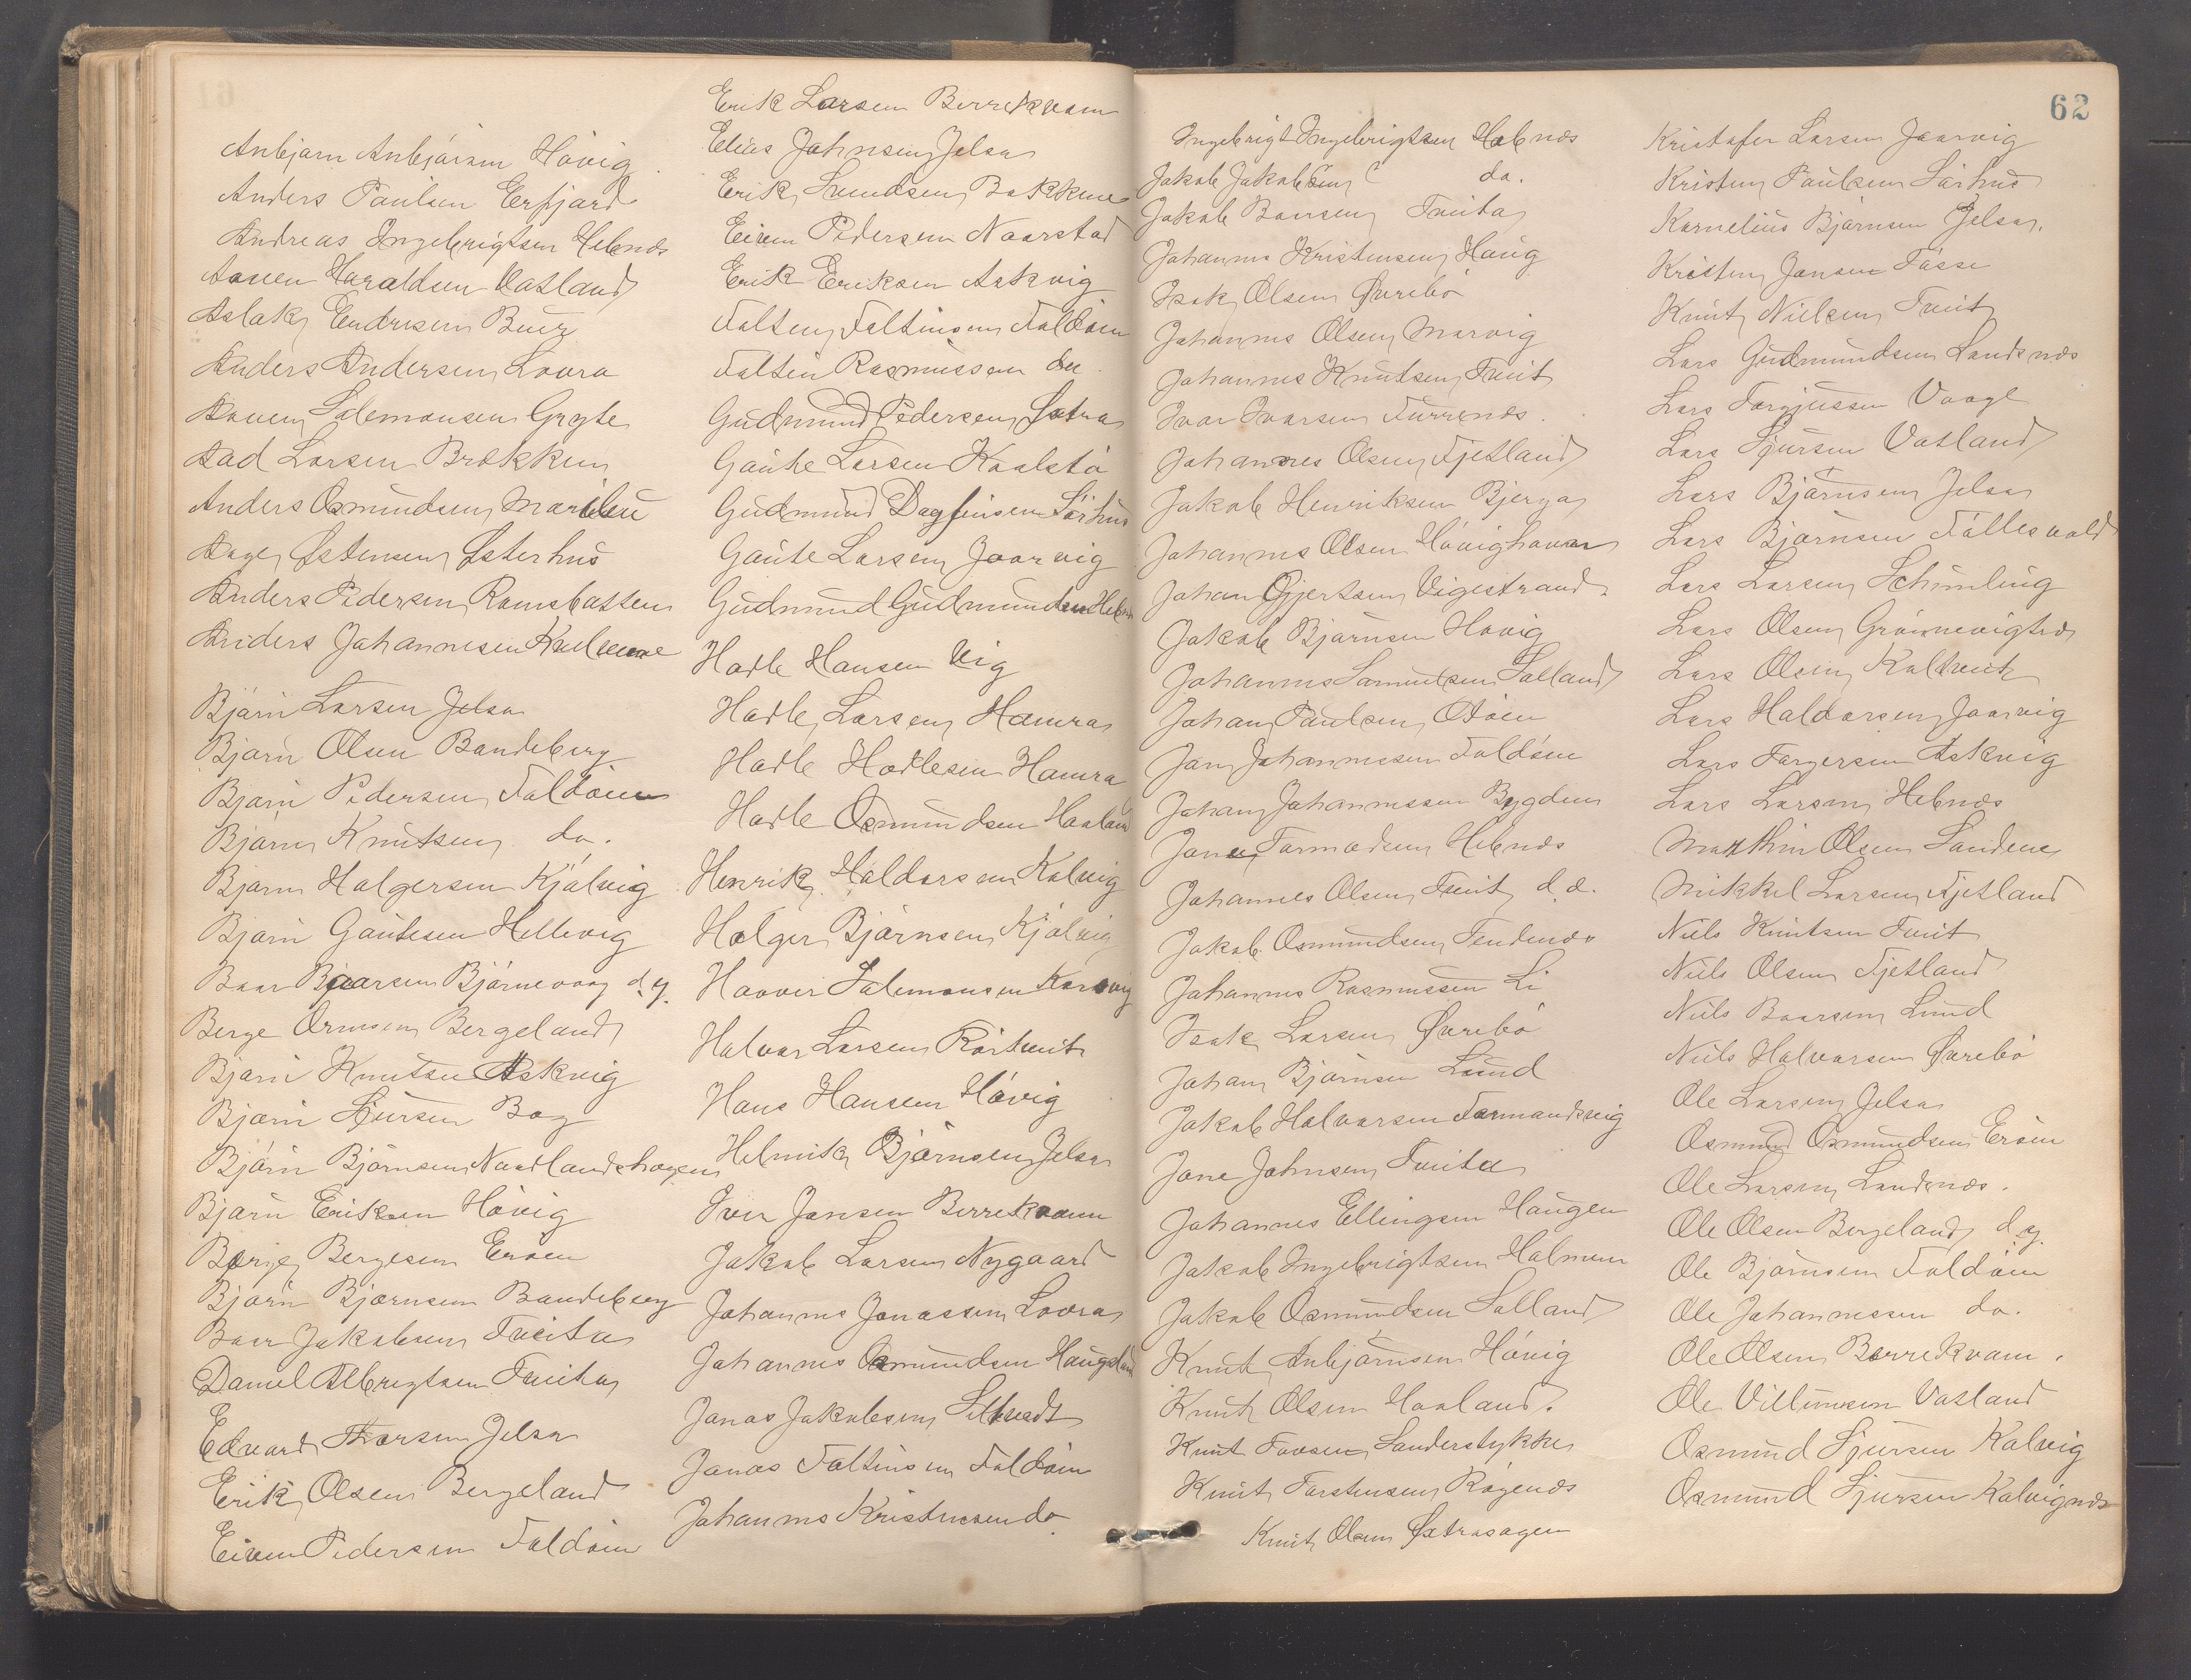 Anbjørn Anbjørnsen Høvig
Anders Paulsen Erfjord
Andreas Ingebrigtsen Hebnæs
Aanen Haraldsen Vatland
Aslak Endresen Buer
Anders Andersen Lovra
Aanen Salemonsen Gryte
Aad Larsen Brækken
Anders Osmundsen
Aage Østensen Østerhus
Anders Pedersen Ramsbatten
Anders Johannesen
Bjørn Larsen Jelsa
Bjørn Olsen Bandeberg
Bjørn Pedersen Foldøen
Bjørn Knutsen do.
Bjørn Holgersen Kjølvig
Bjørn Gautesen Hellevig
Baar Baarsen Bjørnevaag d.y.
Berge Ormsen Bergeland
Bjørn Knutsen Askvig
Bjørn Bog
Bjørn Bjørnsen Nordlandshagen
Bjørn Eriksen Høvig
Børge Bergesen Erøen
Bjørn Bjørnsen Bandeberg
Baar Jakobsen Tveita
Daniel Albregtsen Tveita
Edvard Thorsen Jelsa
Erik Olsen Bergeland
Eiven Pedersen Foldøen
Erik Larsen Berrekvam
Elias Johnsen Jelsa
Erik Svendsen Bakkene
Eiven Pedersen Naarstad
Erik Eriksen Askvig
Faltin Faltinsen Foldøen
Faltin Rasmussen do
Gudmund Pedersen Sætra
Gaute Larsen Kaalstø
Gudmund Dagfinsen Sørhus
Gaute Larsen Jaarvig
Gudmund Gudmundsen Hebn
Hadle Hansen Vig
Hadle Larsen Hamra
Hadle Hadlesen Hamra
Hadle Osmundsen Haaland
Henrik Haldorsen Kalvig
Holger Bjørnsen Kjølvig
Haaver Salemonsen
Halvor Larsen Rørtveit
Hans Hansen Høvig
Helmik Bjørnsen Jelsa
Iver Jonsen Berrekvam
Jakob Larsen Nygaard
Johannes Jonassen Lovra
Johannes Osmundsen Haugeland
Jonas Jakobsen Seltvedt
Jonas Faltinsen Foldøen
Johannes Kristensen do
62
Ingebrigt Ingebrigtsen Hebnæs
Jakob Jakobsen do.
Jakob Bonsen Tveita
Johannes Kristensen Haug
Isak Olsen Øvrebø
Johannes Olsen Marvig
Johannes Knutsen Tveit
Ivar Ivarsen Furrenæs.
Johannes Olsen Fjetland
Jakob Henriksen Bjerga
Johannes Olsen Høvighaven
Johan Gjertsen Vigestrand.
Jakob Bjørnsen Høvig
Johannes Samuelsen Solland
Johan Paulsen Otøen
Jon Johannessen Foldøen
Johan Johannessen Bygden
Jone Tormodsen Hebnæs
Johannes Olsen Tveit d.æ.
Jakob Osmundsen Tendenæs
Johannes Rasmussen Li
Isak Larsen Øvrebø
Johan Bjørnsen Lund
Jakob Halvorsen Formandsvig
Jone Johnsen Tveita
Johannes Ellingsen Haugen
Jakob Ingebrigtsen Holmen
Jakob Osmundsen Solland
Knut Anbjørnsen Høvig
Knut Olsen Haaland.
Knut Tovsen Sanderstykke
Knut Torstensen Røgenæs
Knut Olsen Øxtrasagen
Kristofer Larsen Jaarvig
Kristen Paulsen Sørhus
Kornelius Bjørnsen Jelsa.
Kristen Jonsen Tøsse
Knut Nielsen Tveit
Lars Gudmundsen Landsnæs
Lars Torgjussen Vaage
Lars Sjursen Vatland
Lars Bjørnsen Jelsa
Lars BjørnsenFøllesvold
Lars Larsen Schimling
Lars Olsen Grønnevigtræ
Lars Olsen Kaltveit
Lars Haldorsen Jaarvig
Lars Torgersen Askvig
Lars Larsen Hebnæs
Matthin Olsen Sandene
Mikkel Larsen Fjetland
Niels Knutsen Tveit
Niels Olsen Fjetland
Niels Baarsen Lund
Niels Halvorsen Øvrebø
Ole Larsen Jelsa
Osmund Osmundsen Erøen
Ole Larsen Landsnæs.
Ole Olsen Bergeland d.y.
Ole Bjørnsen Foldøen
Ole Johannessen do.
Ole Olsen Børrekvam.
Ole Villumsen Vatland
Osmund Sjursen Kalvig
Osmund Sjursen Kalvignæs